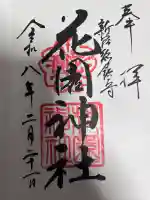 奉拝
新宿総鎮守
花園神社
令和八年二月二十一日